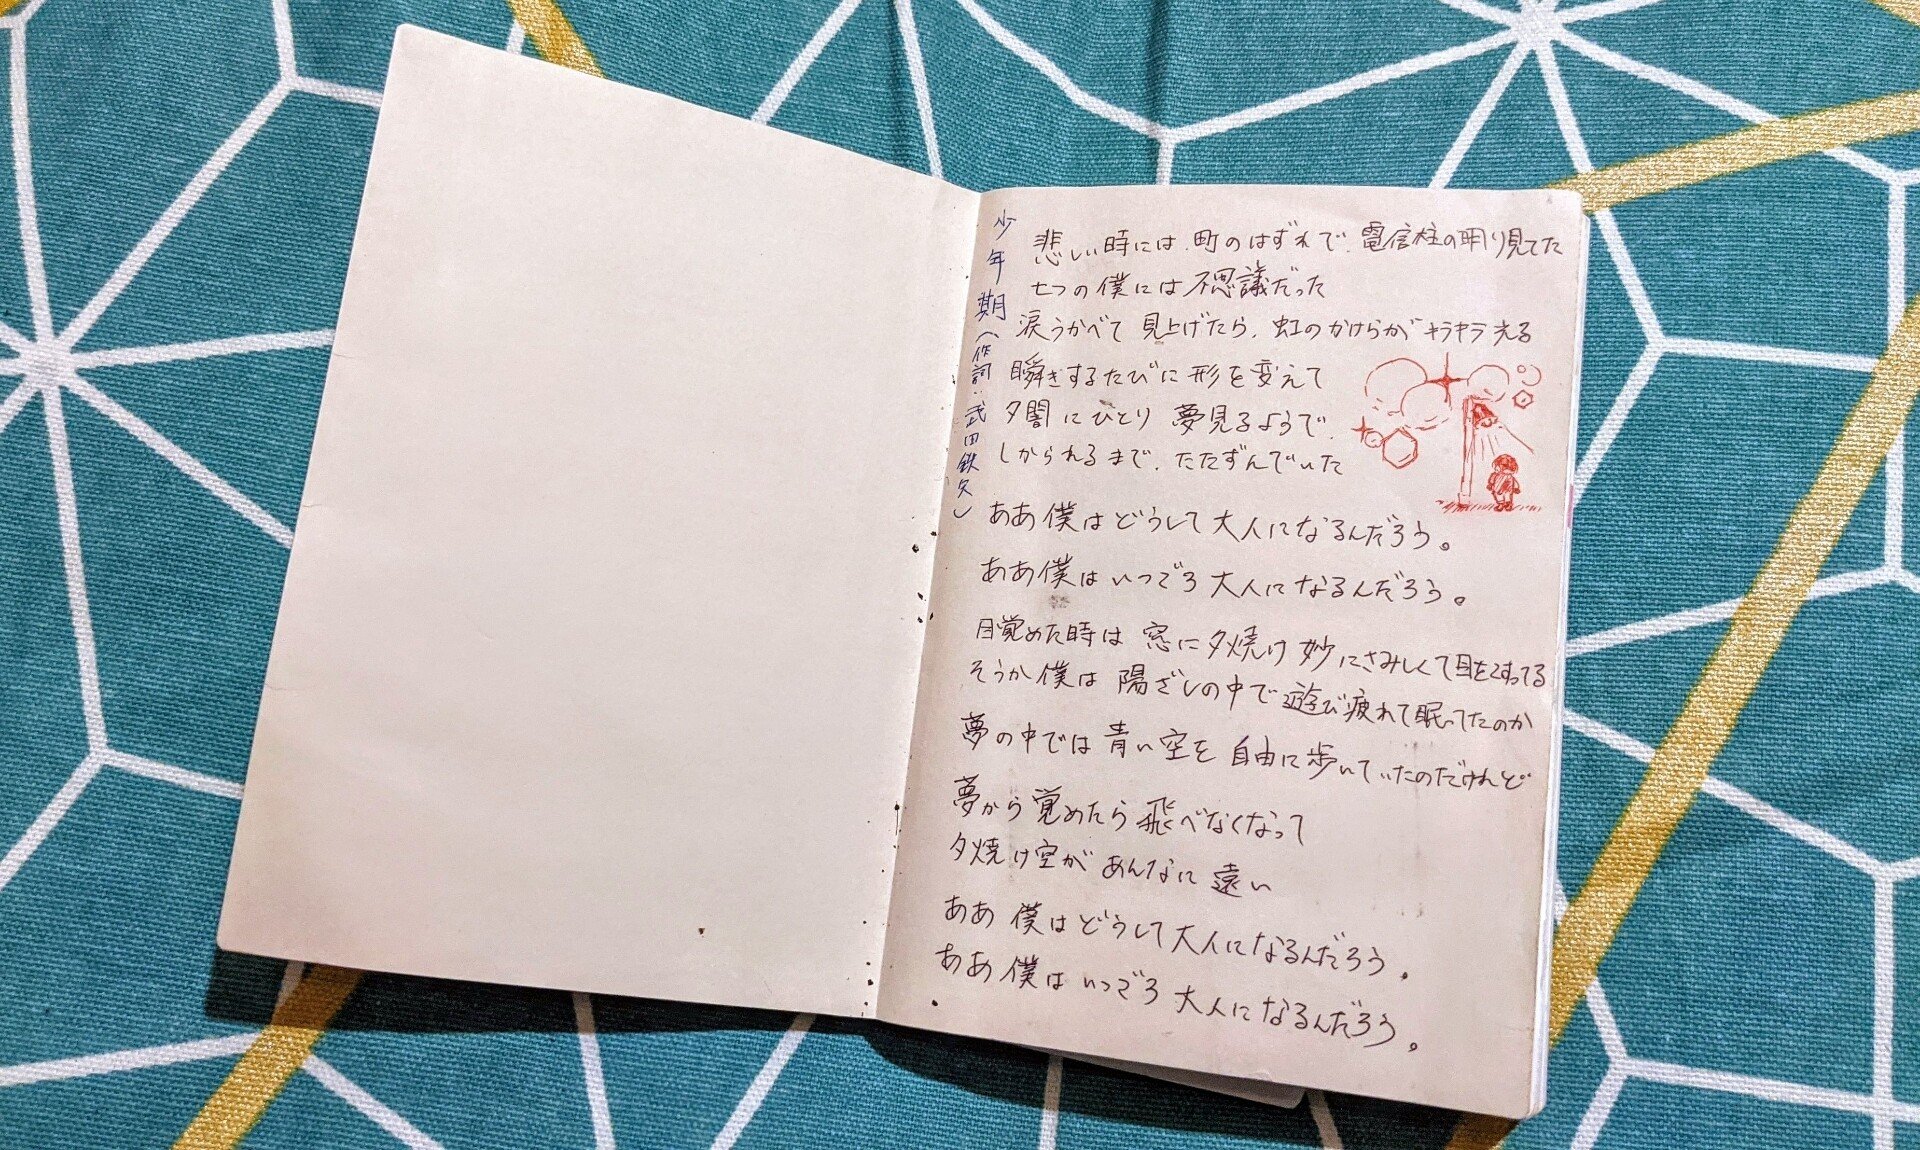 少年期（作詞・武田鉄矢）
悲しい時には 町のはずれで 電信柱の明り見てた
七つの僕には不思議だった
涙うかべて 見上げたら、虹のかけらが キラキラ光る
瞬きするたびに 形を変えて
夕闇にひとり 夢見るようで
しかられるまで、たたずんでいた
ああ僕はどうして大人になるんだろう。
ああ僕はいつごろ大人になるんだろう。
目覚めた時は 窓に夕焼け 妙にさみしくて目をこすってる
そうか僕は 陽ざしの中で 遊び疲れて眠ってたのか
夢の中では 青い空を 自由に歩いていたのだけれど
夢から覚めたら飛べなくなって
夕焼け空が あんなに 遠い
ああ 僕はどうして大人になるんだろう。
ああ僕はいつごろ 大人になるんだろう。